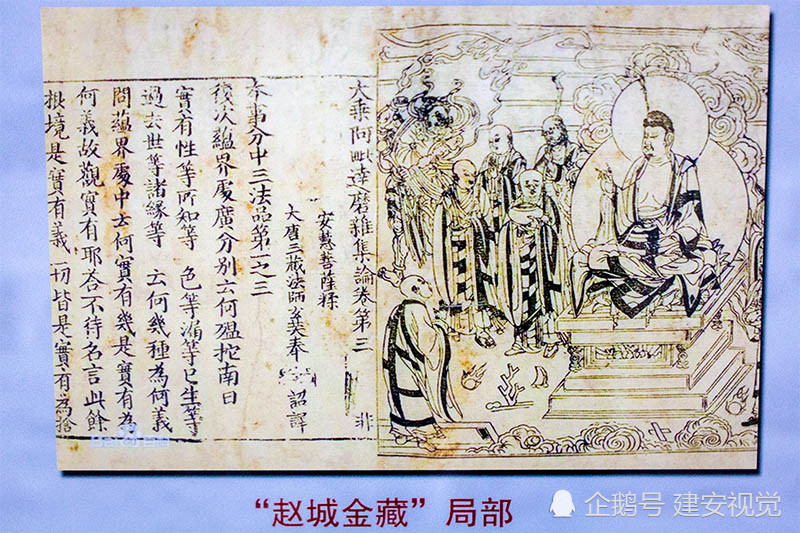 大乘阿毗達磨雜集論卷第三 非
安慧菩薩糅
大唐三藏法師玄奘奉 詔譯
本事分中三法品第一之三
復次蘊界處廣分別云何嗢拕南曰
實有性等所知等 色等漏等已生等
過去世等諸緣等 云何幾種為何義
問蘊界處中云何實有幾是實有為
何義故觀實有耶荅不待名言此餘
根境是實有義一切皆是實有為捨
“赵城金藏”局部
企鹅号 建安视觉